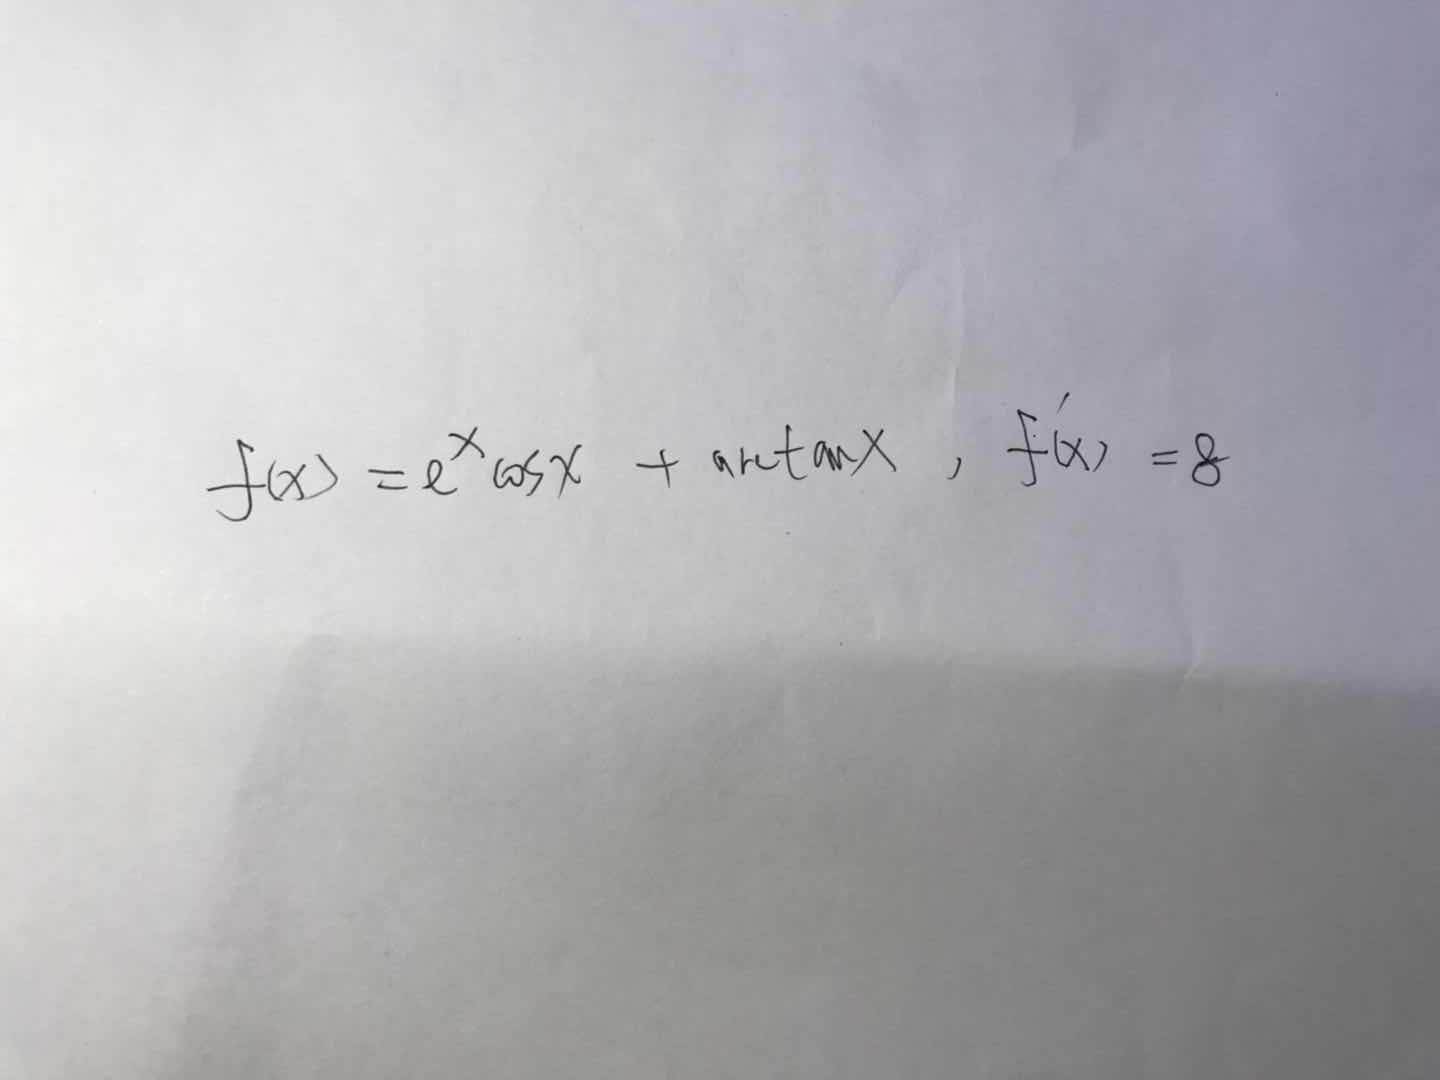 f(x) = e^x cosx + arctanx , f'(x) = 8